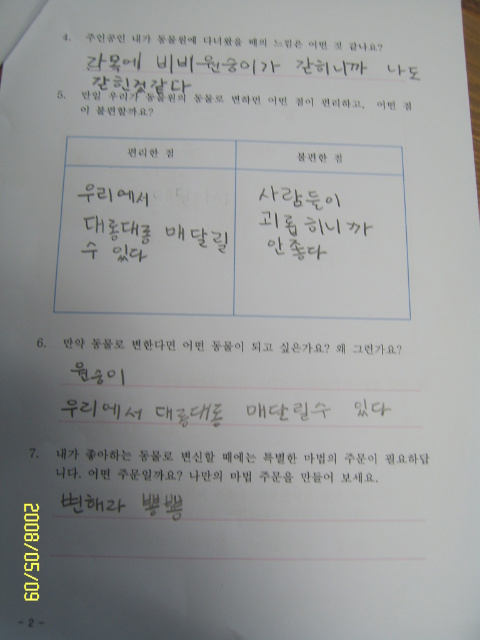 4. 주인공인 내가 동물원에 다녀왔을 때의 느낌은 어떤 것 같나요?
감옥에 비비원숭이가 갇히니까 나도
갇힌것같다
5. 만일 우리가 동물원의 동물로 변하면 어떤 점이 편리하고, 어떤 점
이 불편할까요?
편리한 점
불편한 점
우리에서
대롱대롱 매달릴
수 있다
사람들이
괴롭히니까
안좋다
6. 만약 동물로 변한다면 어떤 동물이 되고 싶은가요? 왜 그런가요?
원숭이
우리에서 대롱대롱 매달릴수 있다
7. 내가 좋아하는 동물로 변신할 때에는 특별한 마법의 주문이 필요하답
니다. 어떤 주문일까요? 나만의 마법 주문을 만들어 보세요.
변해라 뿅뿅
2008/05/09
- 2 -